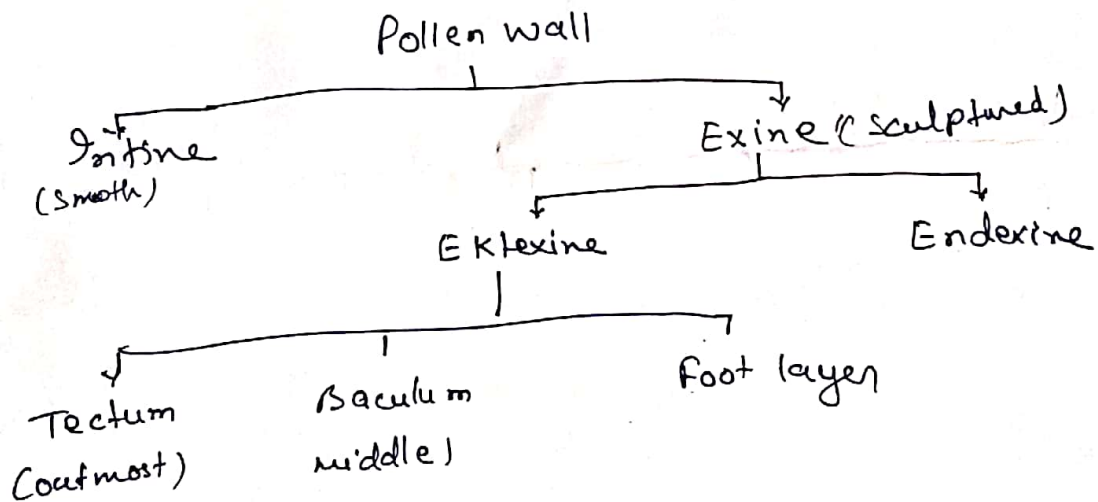 Pollen wall
Intine
(smooth)
Exine (sculptured)
Ektexine
Endexine
Tectum
(outmost)
Baculum
middle)
Foot layer